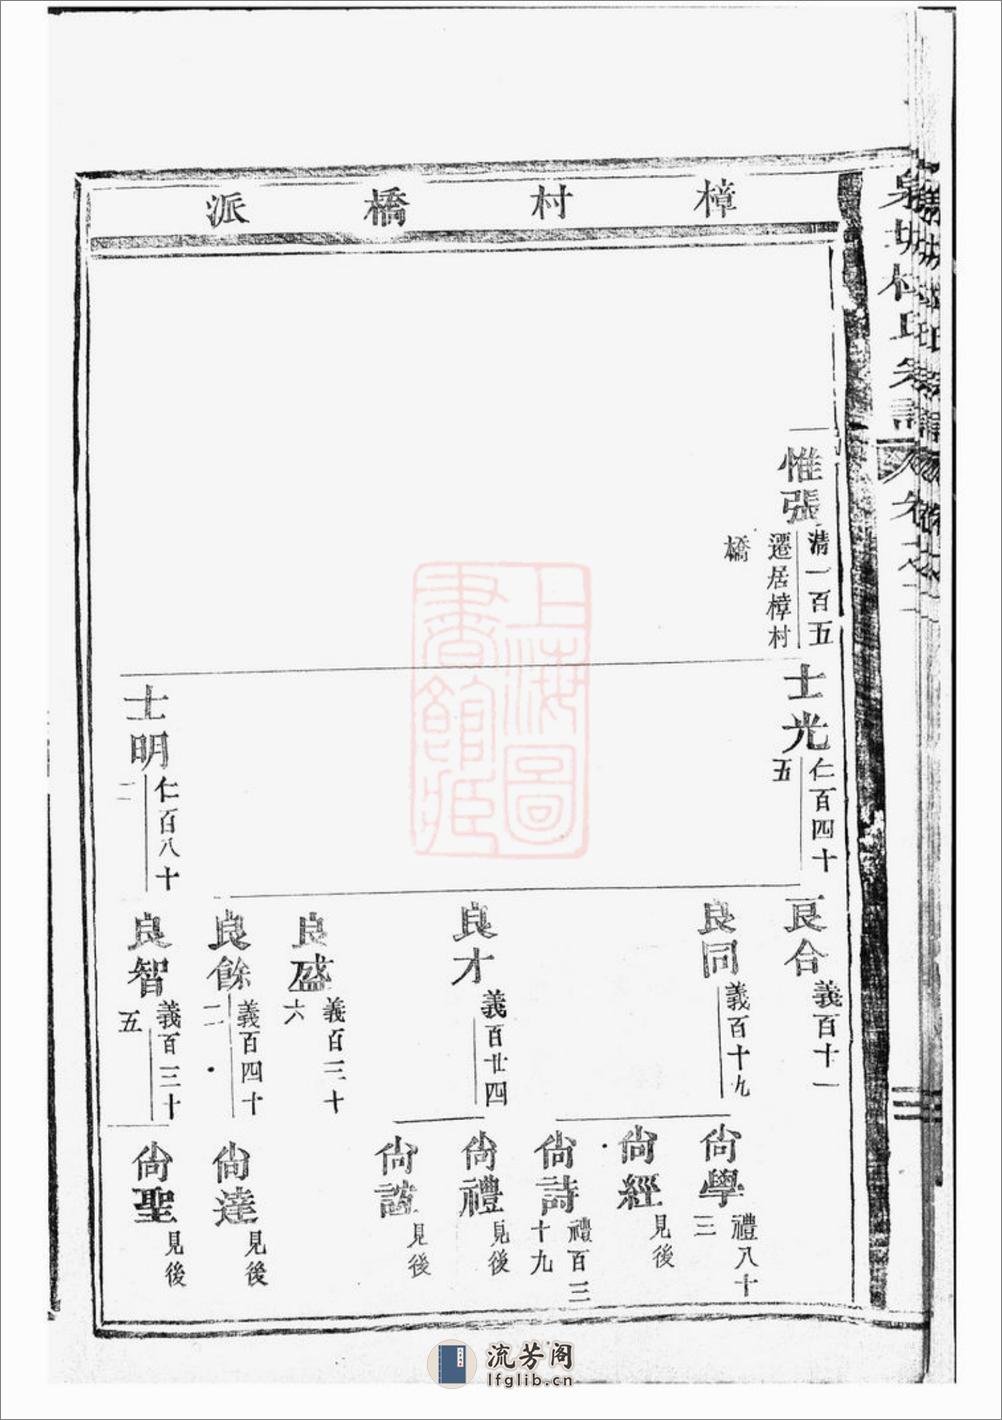 樟村橋派
惟張
清一百五
遷居樟村
橋
士光
仁百四十
五
士明
仁百八十
二
良合
義百十一
良同
義百十九
良才
義百廿四
良盛
義百三十
六
良餘
義百四十
二
良智
義百三十
五
尙學
禮八十
三
尙經
見後
尙詩
禮百三
十九
尙禮
見後
尙誼
見後
尙達
見後
尙聖
見後
上海圖
書館藏
流芳阁
lfglib.cn